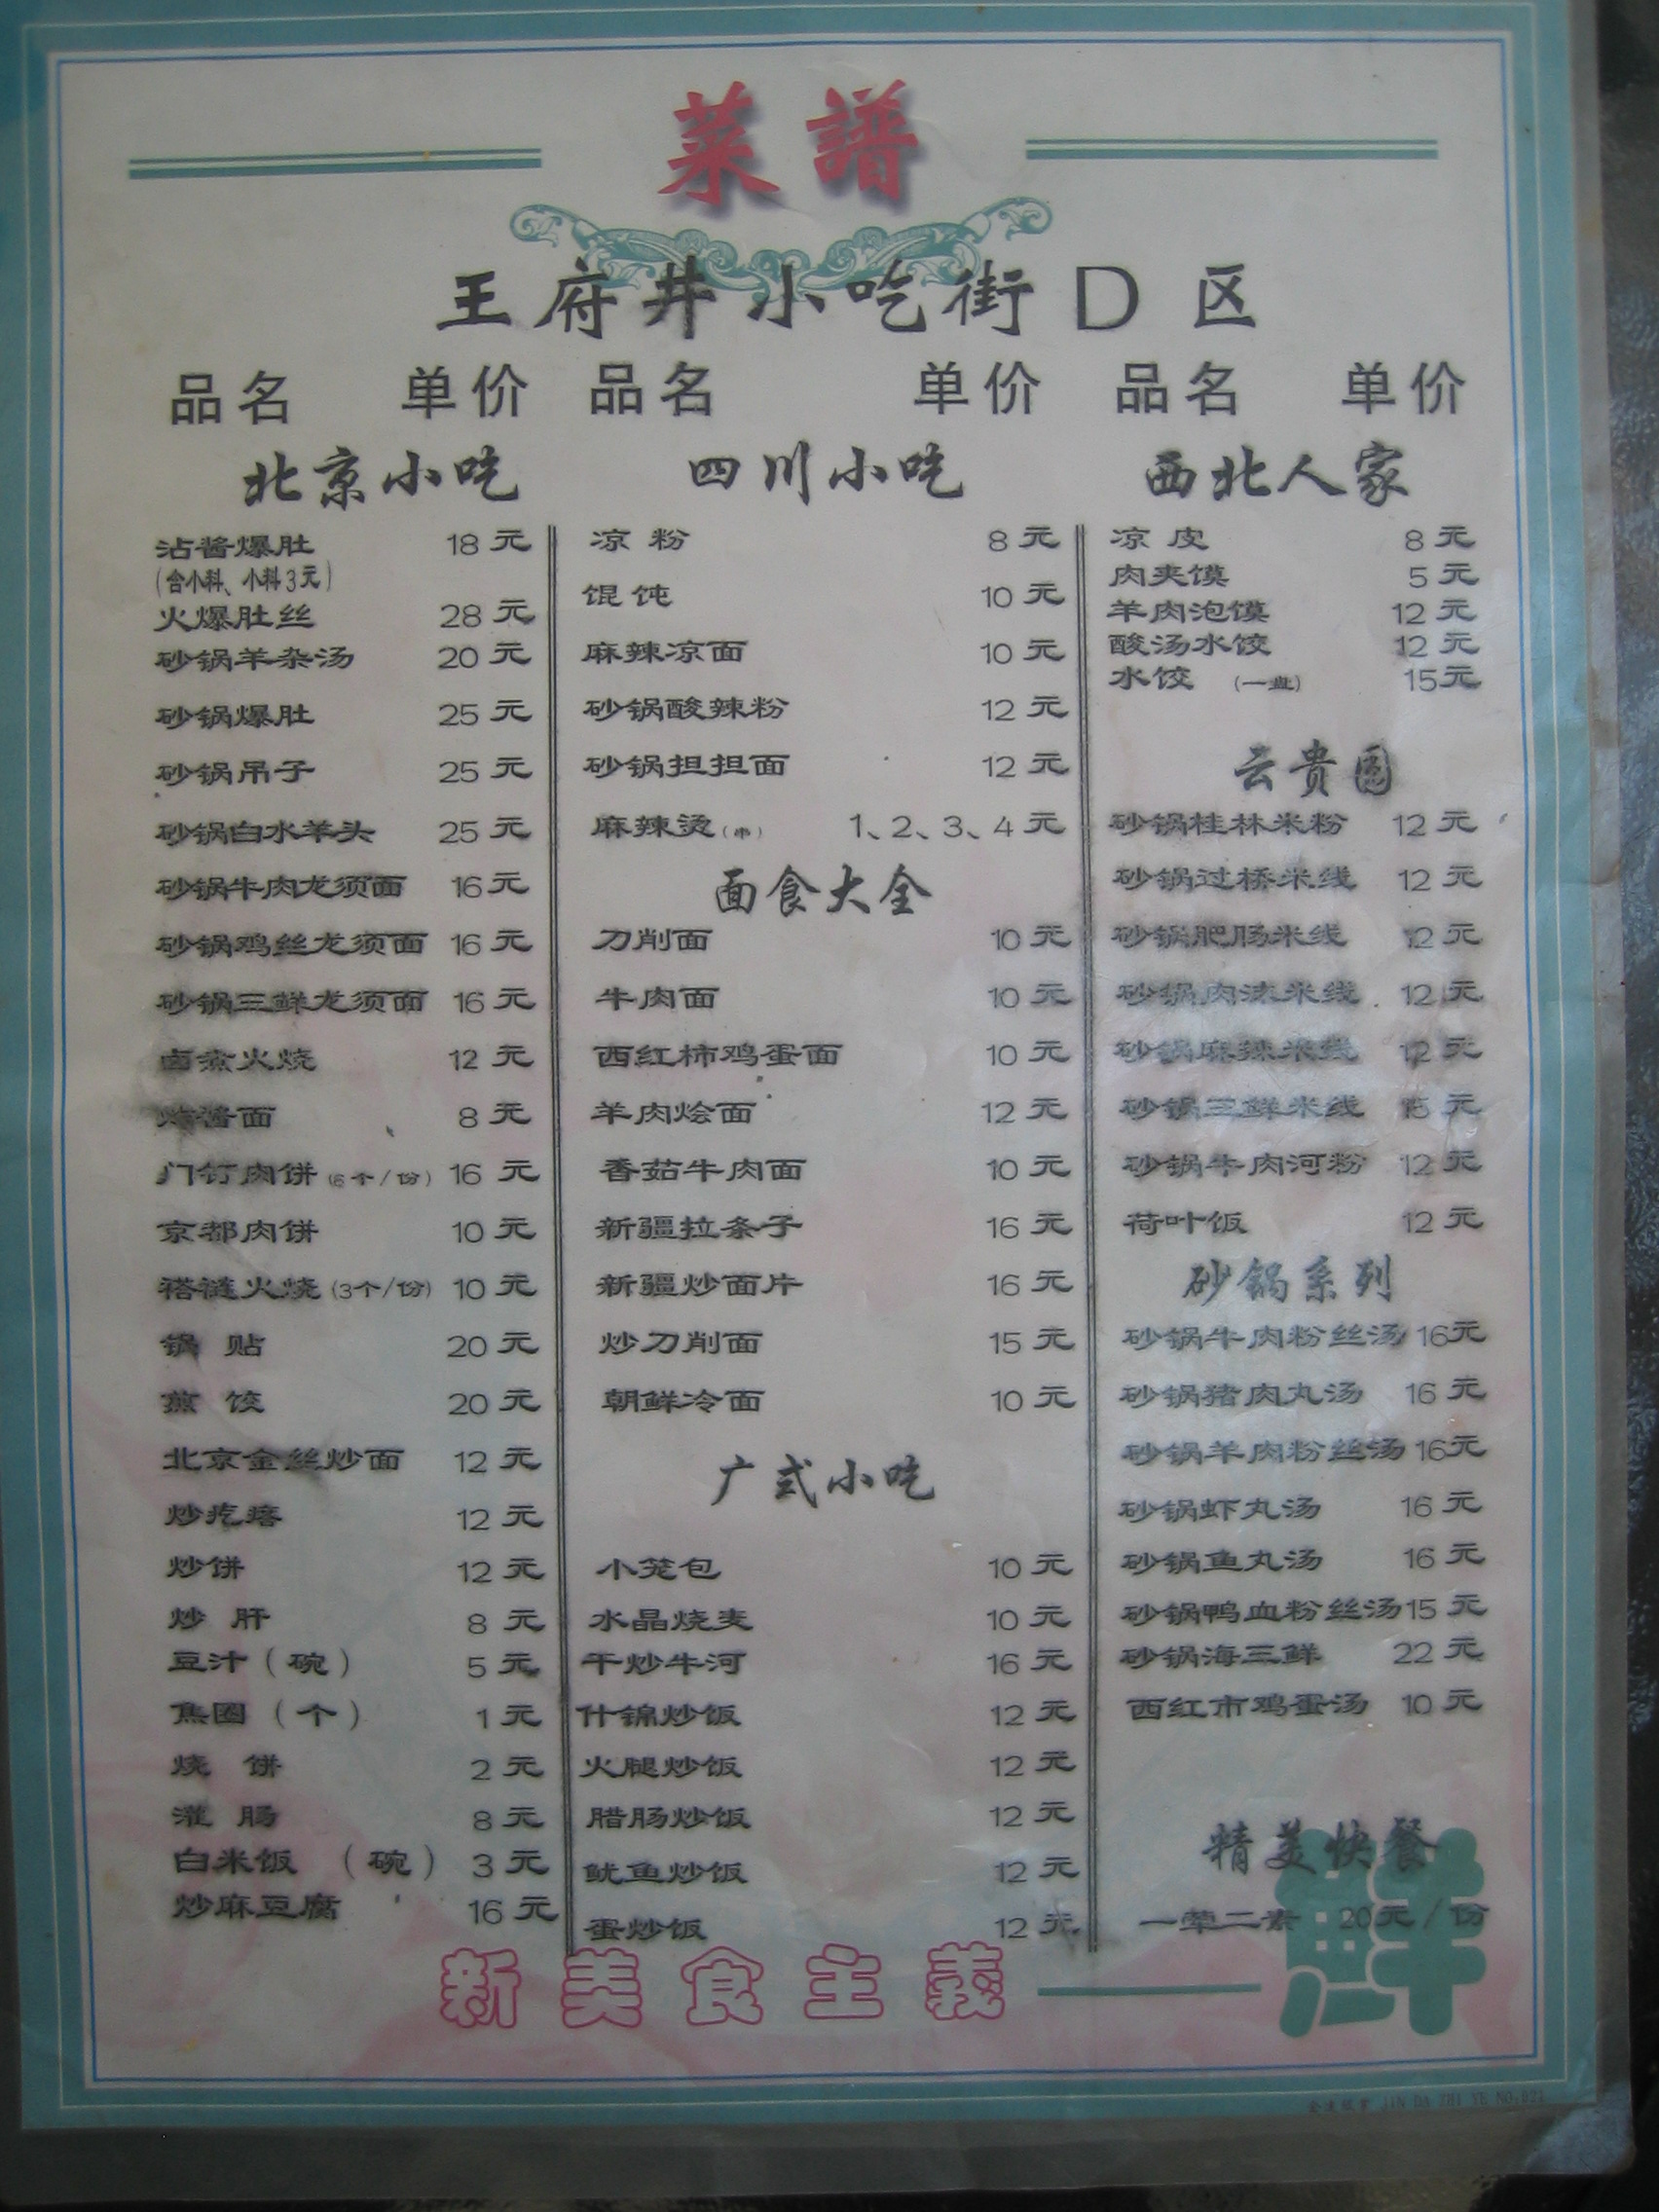 菜譜
王府井小吃街D区
品名 单价 品名 单价 品名 单价
北京小吃
沾酱爆肚 18元
(含小料、小料3元)
火爆肚丝 28元
砂锅羊杂汤 20元
砂锅爆肚 25元
砂锅吊子 25元
砂锅白水羊头 25元
砂锅牛肉龙须面 16元
砂锅鸡丝龙须面 16元
砂锅三鲜龙须面 16元
卤煮火烧 12元
炸酱面 8元
门钉肉饼(6个/份) 16元
京都肉饼 10元
褡裢火烧(3个/份) 10元
锅贴 20元
煎饺 20元
北京金丝炒面 12元
炒疙瘩 12元
炒饼 12元
炒肝 8元
豆汁(碗) 5元
焦圈(个) 1元
烧饼 2元
灌肠 8元
白米饭(碗) 3元
炒麻豆腐 16元
四川小吃
凉粉 8元
馄饨 10元
麻辣凉面 10元
砂锅酸辣粉 12元
砂锅担担面 12元
麻辣烫(串) 1、2、3、4元
面食大全
刀削面 10元
牛肉面 10元
西红柿鸡蛋面 10元
羊肉烩面 12元
香菇牛肉面 10元
新疆拉条子 16元
新疆炒面片 16元
炒刀削面 15元
朝鲜冷面 10元
广式小吃
小笼包 10元
水晶烧麦 10元
干炒牛河 16元
什锦炒饭 12元
火腿炒饭 12元
腊肠炒饭 12元
鱿鱼炒饭 12元
蛋炒饭 12元
西北人家
凉皮 8元
肉夹馍 5元
羊肉泡馍 12元
酸汤水饺 12元
水饺(一盘) 15元
云贵园
砂锅桂林米粉 12元
砂锅过桥米线 12元
砂锅肥肠米线 12元
砂锅肉沫米线 12元
砂锅麻辣米线 12元
砂锅三鲜米线 元
砂锅牛肉河粉 12元
荷叶饭 12元
砂锅系列
砂锅牛肉粉丝汤 16元
砂锅猪肉丸汤 16元
砂锅羊肉粉丝汤 16元
砂锅虾丸汤 16元
砂锅鱼丸汤 16元
砂锅鸭血粉丝汤 15元
砂锅海三鲜 22元
西红市鸡蛋汤 10元
精美快餐
一荤二素 20元/份
新美食主義
鮮
JIN DA ZHI YE NO:021